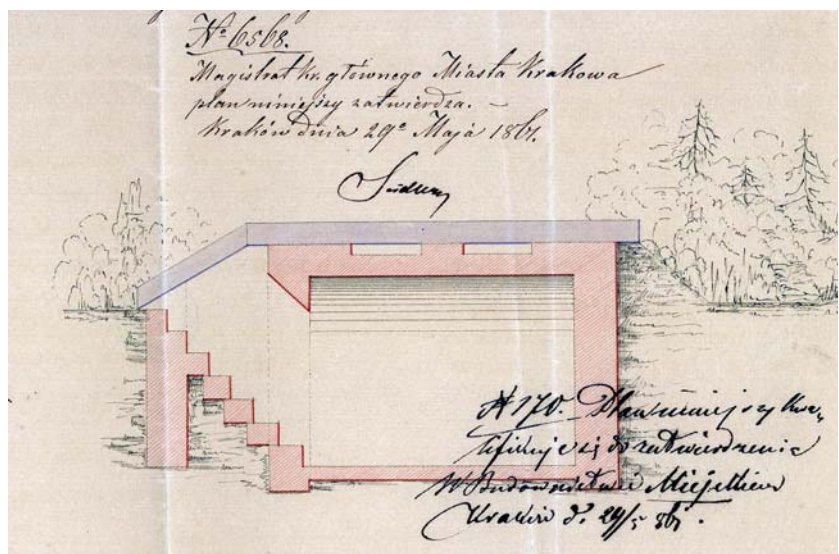 No 6568.
Magistrat kr. głównego Miasta Krakowa
plan niniejszy zatwierdza. –
Kraków dnia 29o Maja 1867.
N 170. Plan niniejszy kwa-
lifikuje się do zatwierdzenia
W Budownictwie Miejskiem
Kraków d. 24/5 867.